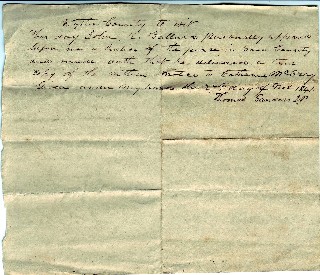 County to wit
This day John R. Ballard personally appeared
before me a Justice of the peace in said County
and made oath that he delivered a true
copy of the within notice to
Given under my hand the day of Oct 1841
Thomas Sanders JP